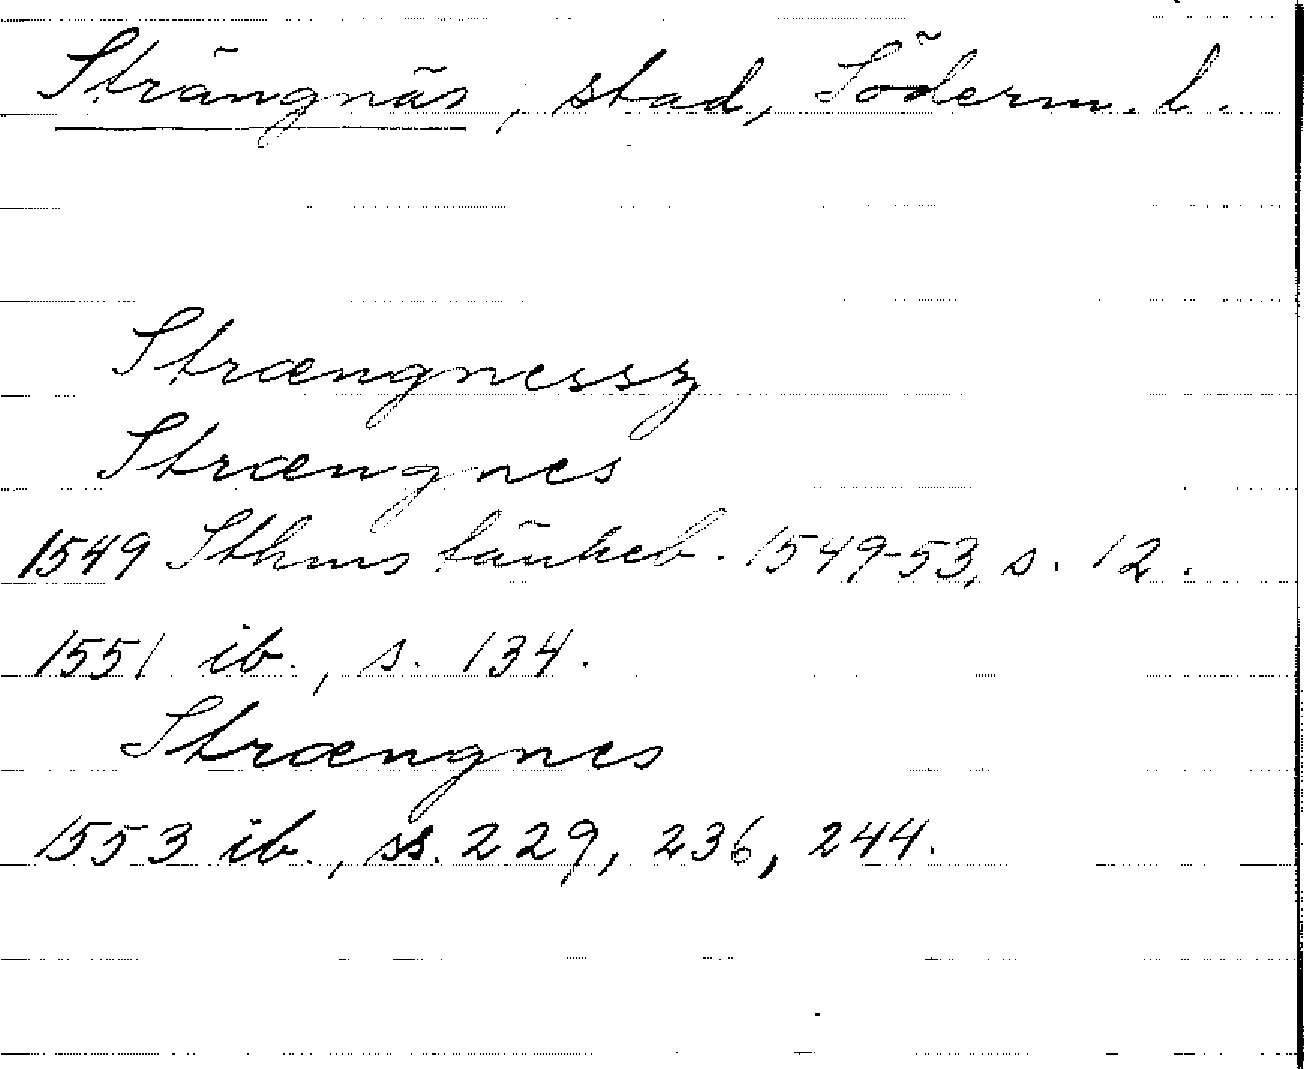 Strängnäs, stad, Söderm. l.
Strængnessz
Strængnes
1549 Sthms tänkeb. 1549-53, s. 12.
1551 ib., s. 134.
Strængnes
1553 ib., ss. 229, 236, 244.